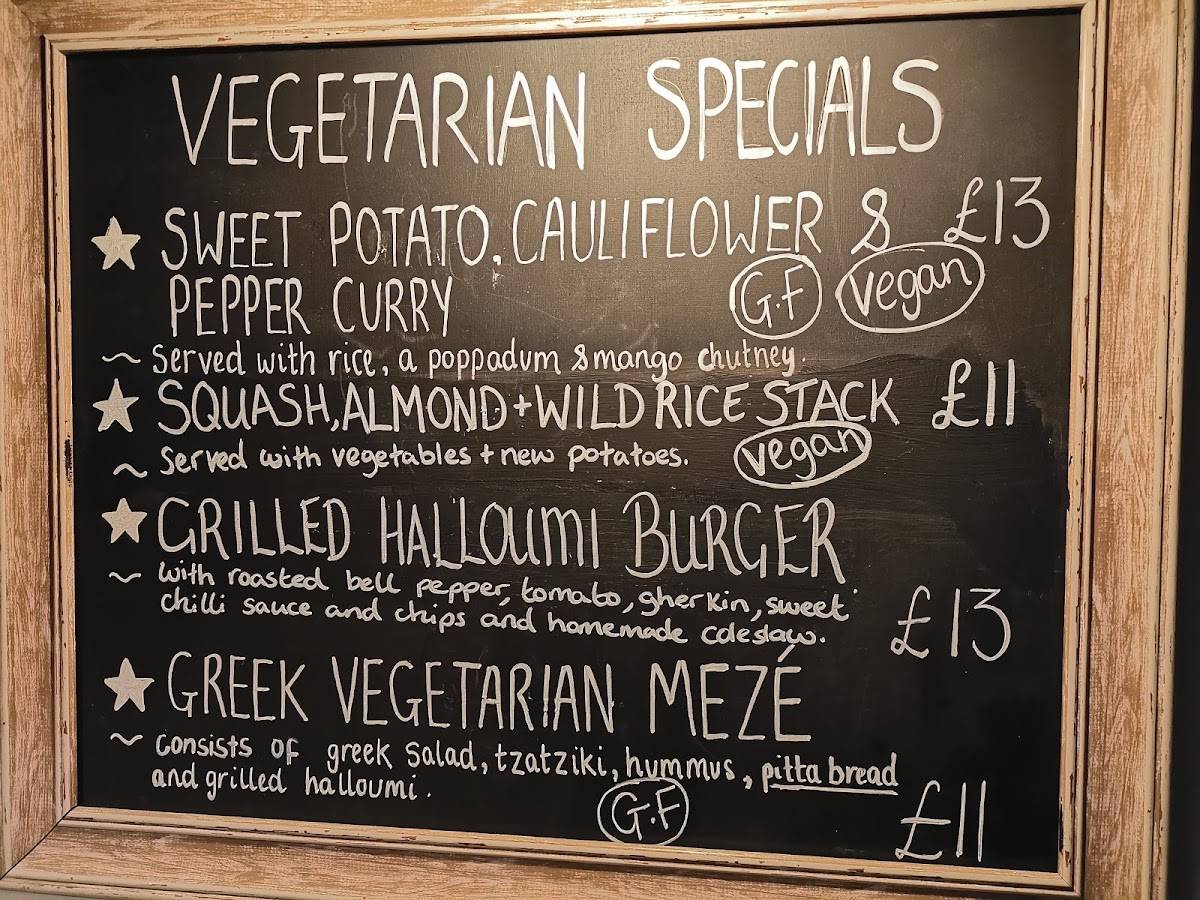 VEGETARIAN SPECIALS
SWEET POTATO, CAULIFLOWER & £13
PEPPER CURRY G.F vegan
~ Served with rice, a poppadum & mango chutney.
SQUASH, ALMOND + WILD RICE STACK £11
~ Served with vegetables + new potatoes. vegan
GRILLED HALLOUMI BURGER
~ with roasted bell pepper, tomato, gherkin, sweet
chilli sauce and chips and homemade coleslaw. £13
GREEK VEGETARIAN MEZÉ
~ consists of greek salad, tzatziki, hummus, pitta bread
and grilled halloumi. G.F £11